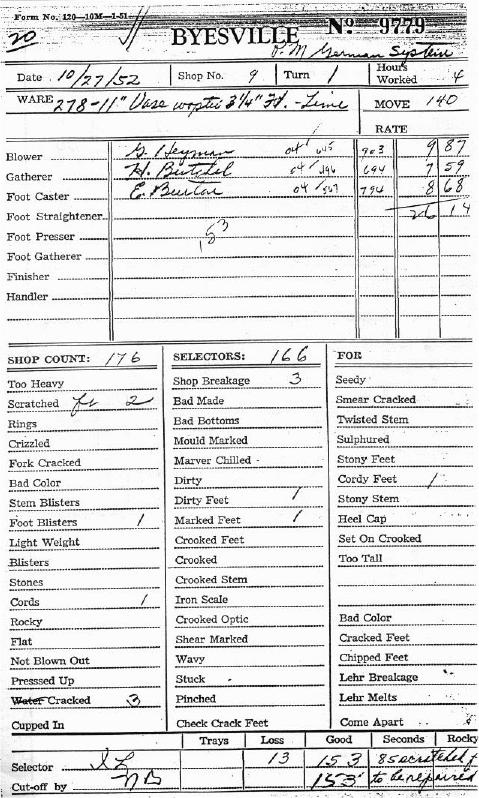 Form No. 120—10M—1-51
20
BYESVILLE No. 9779
P.M German System
Date 10/27/52 Shop No. 9 Turn 1 Hours Worked 4
WARE 278-11" Vase 3 1/4" Ft. - Lime MOVE 140
RATE
Blower G. Heyman 04/645 903 9 87
Gatherer H. 04/496 694 7 59
Foot Caster E. Burton 04/567 794 8 68
Foot Straightener 26 14
Foot Presser 153
Foot Gatherer
Finisher
Handler
SHOP COUNT: 176 SELECTORS: 166 FOR
Too Heavy Shop Breakage 3 Seedy
Scratched ft 2 Bad Made Smear Cracked
Rings Bad Bottoms Twisted Stem
Crizzled Mould Marked Sulphured
Fork Cracked Marver Chilled Stony Feet
Bad Color Dirty Cordy Feet 1
Stem Blisters Dirty Feet 1 Stony Stem
Foot Blisters 1 Marked Feet 1 Heel Cap
Light Weight Crooked Feet Set On Crooked
Blisters Crooked Too Tall
Stones Crooked Stem
Cords 1 Iron Scale
Rocky Crooked Optic Bad Color
Flat Shear Marked Cracked Feet
Not Blown Out Wavy Chipped Feet
Presssed Up Stuck Lehr Breakage
Water Cracked 3 Pinched Lehr Melts
Cupped In Check Crack Feet Come Apart
Trays Loss Good Seconds Rocky
Selector 13 153 8 scratched f
Cut-off by 153 to be repaired